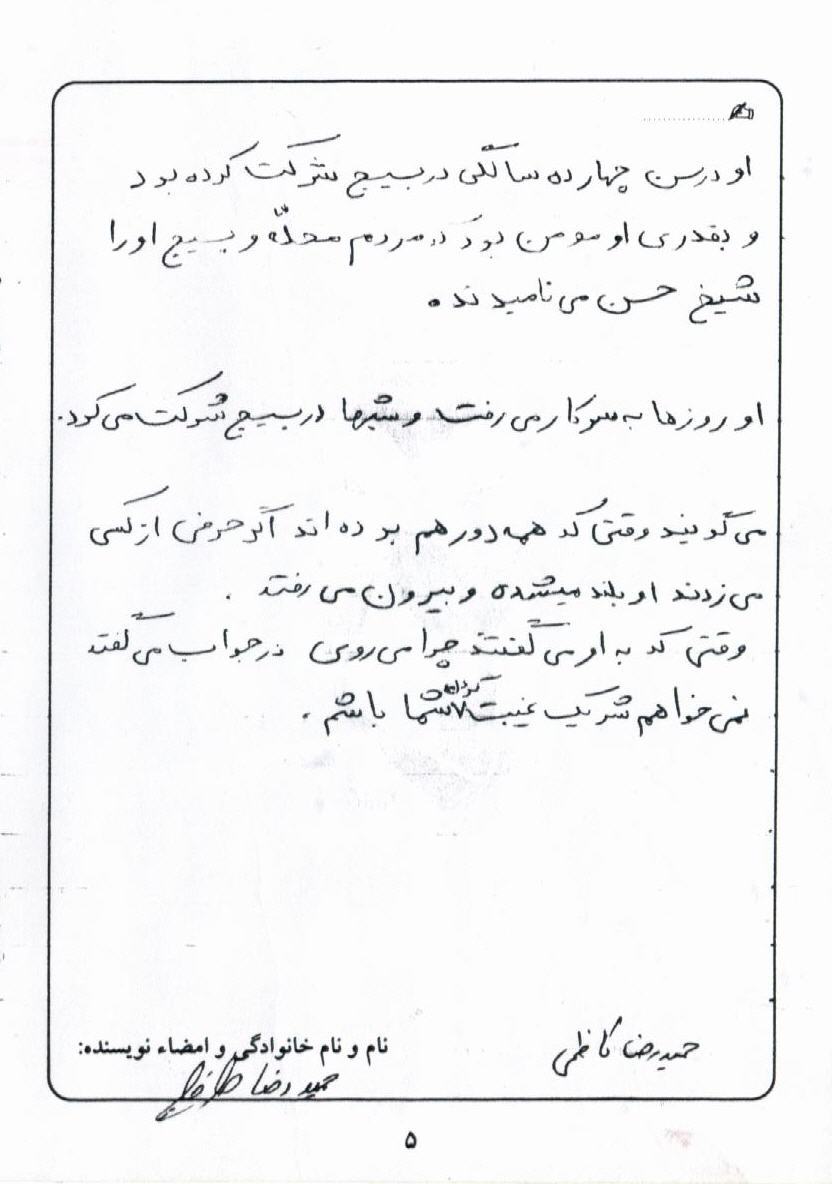 او درسن چهارده سالگی در بسیج شرکت کرده بود
و بقدری او مومن بود که مردم محلّه و بسیج اورا
شیخ حسن می نامیدند.
او روزها به سرکار می رفت و شبها در بسیج شرکت می کرد.
می گویند وقتی که همه دور هم بوده اند اگر حرفی از کسی
می زدند او بلند میشده و بیرون می رفته .
وقتی که به او می گفتند چرا می روی در جواب می گفته
نمی خواهم شریک غیبت کردن شما باشم .
حمیدرضا کاظمی
نام و نام خانوادگی و امضاء نویسنده:
حمیدرضا
۵